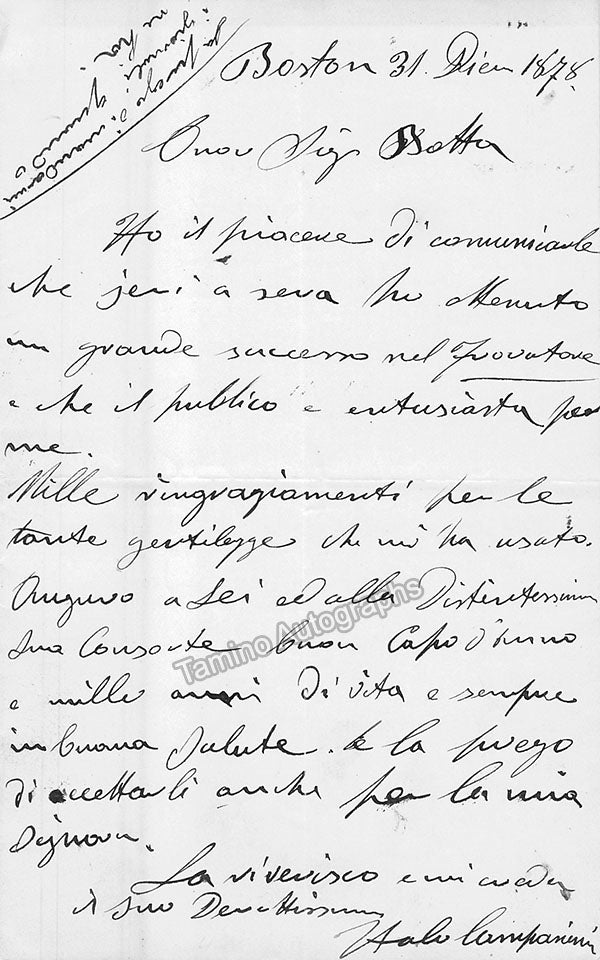 La prego di mandarmi
i giornali quando
ne ha
Boston 31. Dicem 1878.
Buon Sigr Botta
Ho il piacere di comunicarle
che jeri a sera ho ottenuto
un grande successo nel Trovatore
e che il publico e entusiasta per
me.
Mille ringraziamenti per le
tante gentilezze che mi ha usato.
Auguro a Lei ed alla Distintissima
Sua Consorte buon Capo d'anno
e mille anni di vita e sempre
in buona salute. E la prego
di accettarli anche per la mia
Signora.
La riverisco e mi creda
il suo Devottissimo
Italo Campanini
Tamino Autographs